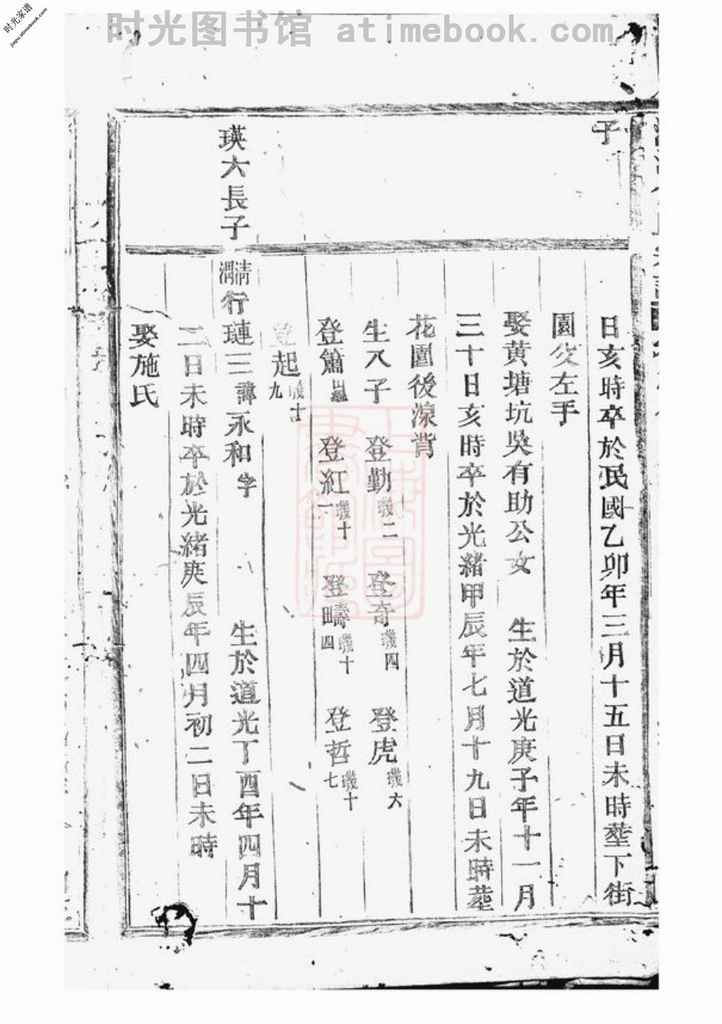 时光图书馆 atimebook.com
时光家谱
jiapu.atimebook.com
子
日亥時卒於民國乙卯年三月十五日未時塟下街
園父左手
娶黄塘坑吳有助公女 生於道光庚子年十一月
三十日亥時卒於光緒甲辰年七月十九日未時塟
花園後湶背
生八子 登勤璣二 登奇璣四 登虎璣六
登簫 登紅璣十一 登疇璣十四 登哲璣十七
登起璣十九
瑛六長子
清渭行璉三諱永和字 生於道光丁酉年四月十
二日未時卒於光緒庚辰年四月初二日未時
娶施氏